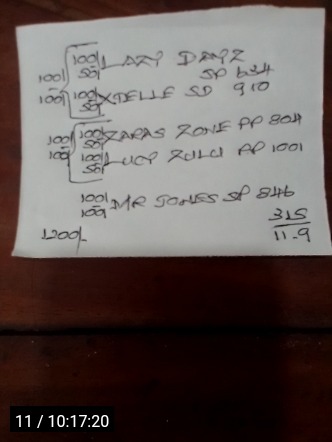 100/ 50/ LAZY DAYZ
SP 634
100/ 100/ 100/ 50/ XTELLE SD 910
100/ 50/ ZARAS ZONE PP 804
100/ 100/ 100/ 50/ LUCY ZULU PP 1001
100/ 100/ MR JONES SP 846
315
1200/- 11-9
11 / 10:17:20